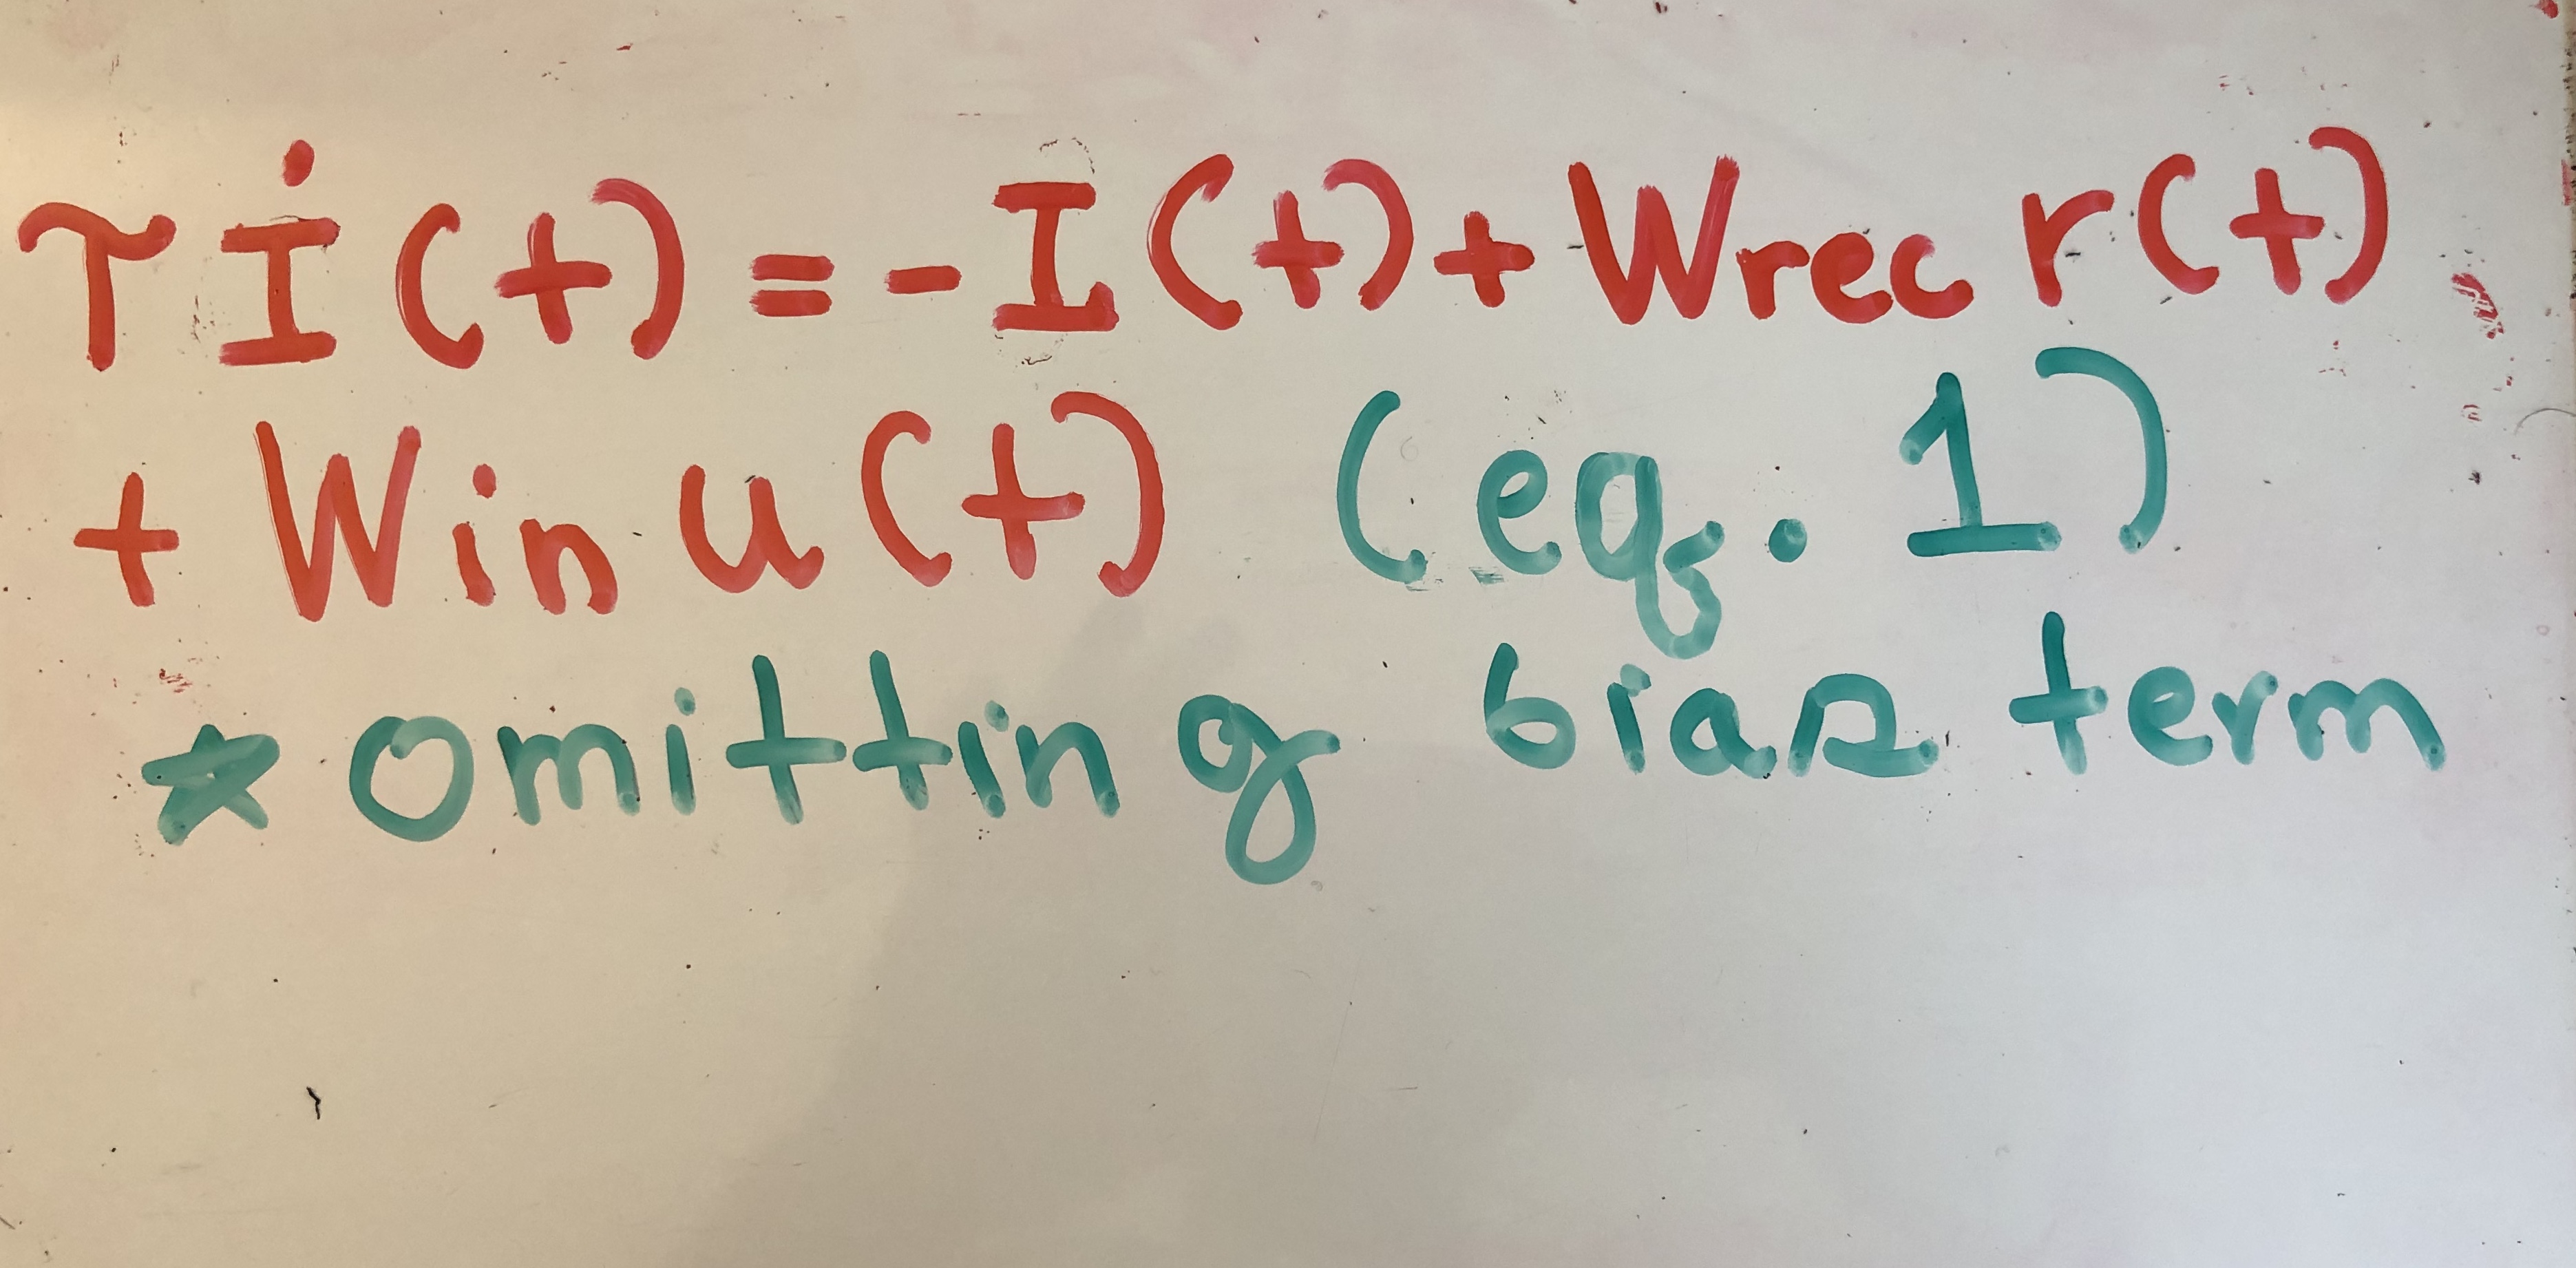 τ İ(t) = -I(t) + Wrec r(t)
+ Win u(t) (eq. 1)
* omitting bias term